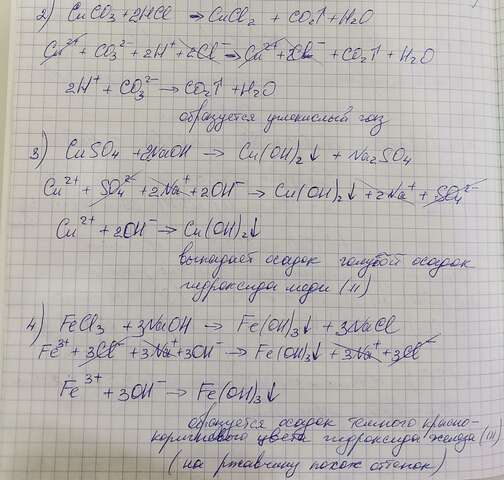 2) CuCO₃ + 2HCl → CuCl₂ + CO₂↑ + H₂O
Cu²⁺ + CO₃²⁻ + 2H⁺ + 2Cl⁻ → Cu²⁺ + 2Cl⁻ + CO₂↑ + H₂O
2H⁺ + CO₃²⁻ → CO₂↑ + H₂O
образуется углекислый газ
3) CuSO₄ + 2NaOH → Cu(OH)₂↓ + Na₂SO₄
Cu²⁺ + SO₄²⁻ + 2Na⁺ + 2OH⁻ → Cu(OH)₂↓ + 2Na⁺ + SO₄²⁻
Cu²⁺ + 2OH⁻ → Cu(OH)₂↓
выпадает осадок голубой осадок
гидроксида меди (II)
4) FeCl₃ + 3NaOH → Fe(OH)₃↓ + 3NaCl
Fe³⁺ + 3Cl⁻ + 3Na⁺ + 3OH⁻ → Fe(OH)₃↓ + 3Na⁺ + 3Cl⁻
Fe³⁺ + 3OH⁻ → Fe(OH)₃↓
образуется осадок темного красно-
коричневого цвета гидроксида железа (III)
(на ржавчину похож оттенок)